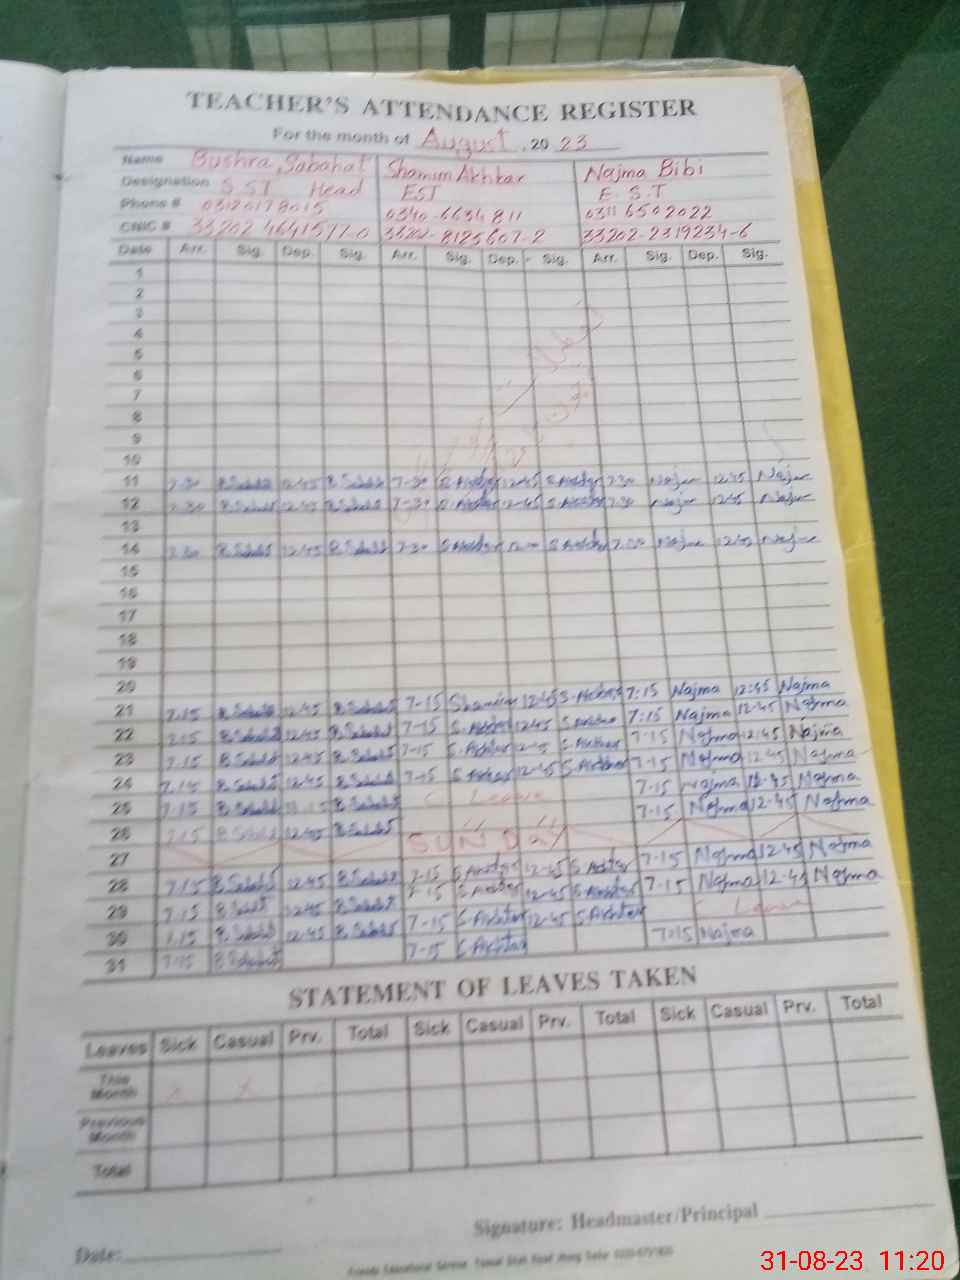 TEACHER'S ATTENDANCE REGISTER
For the month of August, 20 23
Name Bushra Sabahat Shamim Akhtar Najma Bibi
Designation S ST Head EST E.S.T
Phone # 03120178015 0340-6634811 03116502022
CNIC # 33202 33202-8125607-2 33202-2319234-6
Date Arr. Sig. Dep. Sig. Arr. Sig. Dep. Sig. Arr. Sig. Dep. Sig.
1
2
3
4
5
6
7
8
9
10
11 7-30 B.Sabahat 12:45 B.Sabahat 7-30 S.Akhtar 12-45 S.Akhtar 7:30 Najma 12:45 Najma
12 7:30 B.Sabahat 12:45 B.Sabahat 7-30 S.Akhtar 12-45 S.Akhtar 7:30 Najma 12:45 Najma
13
14 7:30 B.Sabahat 12:45 B.Sabahat 7-30 S.Akhtar S.Akhtar Najma Najma
15
16
17
18
19
20
21 7:15 B.Sabahat 12:45 B.Sabahat 7-15 Shamim 12-45 S.Akhtar 7:15 Najma 12:45 Najma
22 7:15 B.Sabahat 12:45 B.Sabahat 7-15 S.Akhtar 12-45 S.Akhtar 7:15 Najma 12-45 Najma
23 7:15 B.Sabahat 12:45 B.Sabahat 7-15 S.Akhtar 12-45 S.Akhtar 7-15 Najma 12:45 Najma
24 7:15 B.Sabahat 12:45 B.Sabahat 7-15 S.Akhtar 12-45 S.Akhtar 7-15 Najma 12-45 Najma
25 7:15 B.Sabahat B.Sabahat Leave 7-15 Najma 12-45 Najma
26 7:15 B.Sabahat 12:45 B.Sabahat 7-15 Najma 12-45 Najma
27 SUNDAY
28 7:15 B.Sabahat 12:45 B.Sabahat 7-15 S.Akhtar 12-45 S.Akhtar 7-15 Najma 12-45 Najma
29 7:15 B.Sabahat 12:45 B.Sabahat 7-15 S.Akhtar 12-45 S.Akhtar 7-15 Najma 12-45 Najma
30 7:15 B.Sabahat 12:45 B.Sabahat 7-15 S.Akhtar 12-45 S.Akhtar Leave
31 7:15 B.Sabahat 7-15 S.Akhtar 7:15 Najma
STATEMENT OF LEAVES TAKEN
Leaves Sick Casual Prv. Total Sick Casual Prv. Total Sick Casual Prv. Total
This Month x x
Previous Month
Total
Signature: Headmaster/Principal
Date:
31-08-23 11:20